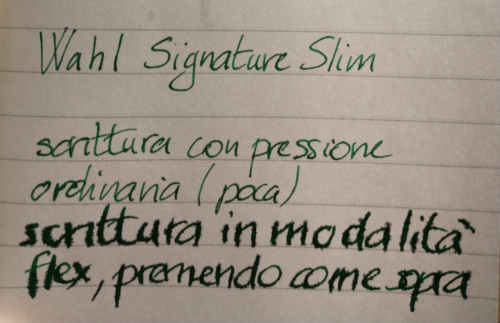 Wahl Signature Slim
scrittura con pressione
ordinaria (poca)
scrittura in modalità
flex, premendo come sopra